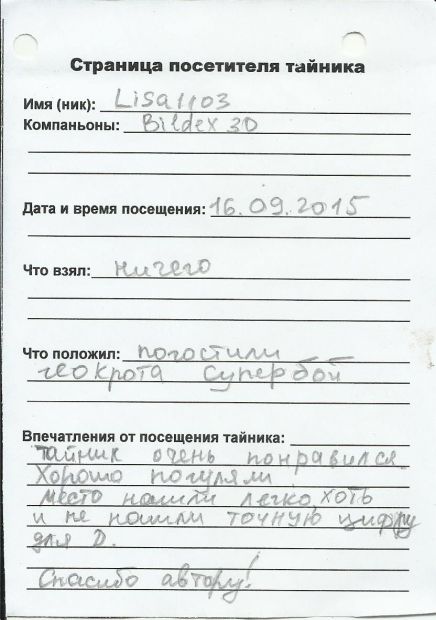 Страница посетителя тайника
Имя (ник): Lisa1103
Компаньоны: Bildex 3D
Дата и время посещения: 16.09.2015
Что взял: ничего
Что положил: погостили
геокрота Супербой
Впечатления от посещения тайника:
тайник очень понравился.
Хорошо погуляли
место нашли легко, хоть
и не нашли точную цифру
для D.
Спасибо автору!